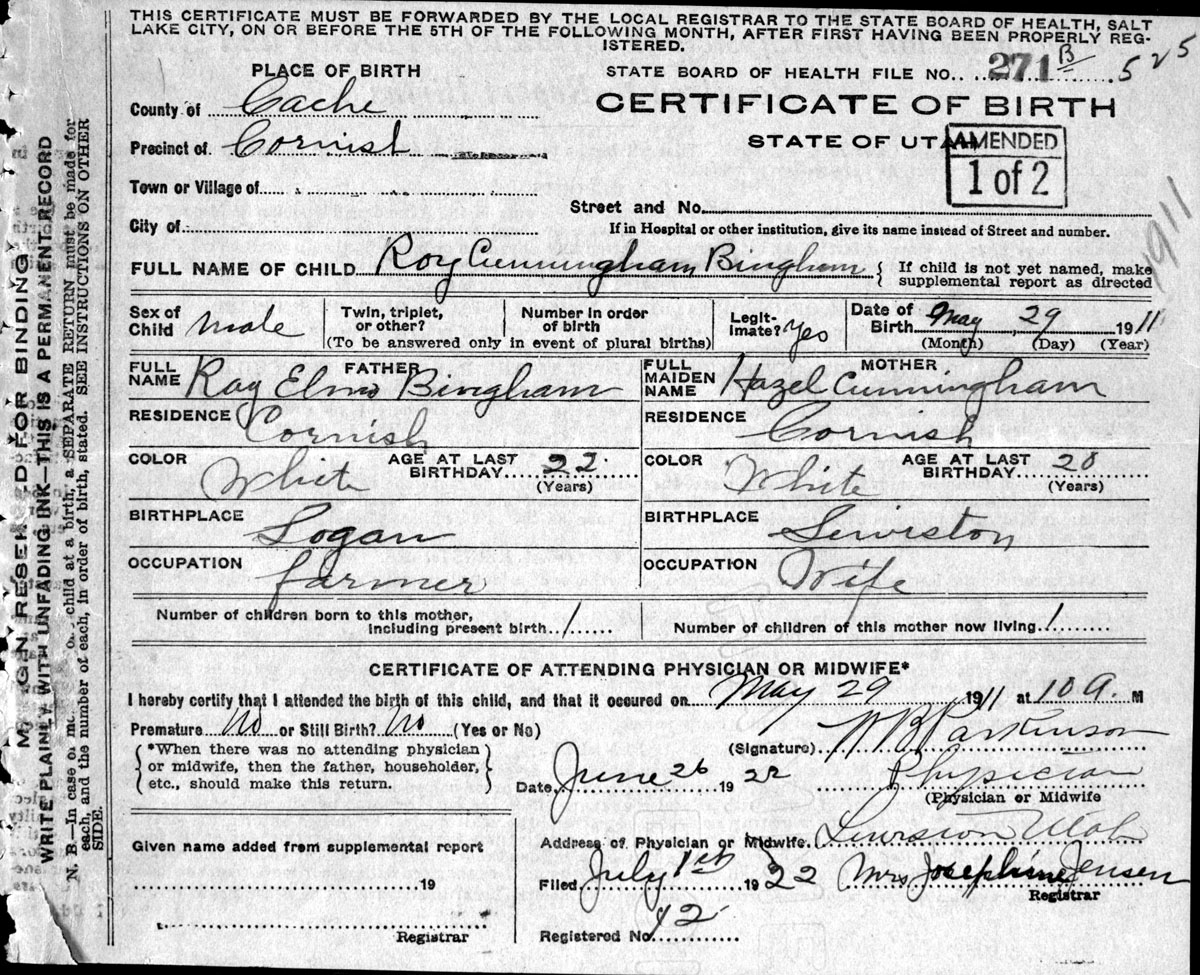 THIS CERTIFICATE MUST BE FORWARDED BY THE LOCAL REGISTRAR TO THE STATE BOARD OF HEALTH, SALT
LAKE CITY, ON OR BEFORE THE 5TH OF THE FOLLOWING MONTH, AFTER FIRST HAVING BEEN PROPERLY REG-
ISTERED.
PLACE OF BIRTH
STATE BOARD OF HEALTH FILE NO. 271 B 525
County of Cache
CERTIFICATE OF BIRTH
Precinct of Cornish
STATE OF UTAH
AMENDED
1 of 2
Town or Village of
Street and No.
1911
City of
If in Hospital or other institution, give its name instead of Street and number.
FULL NAME OF CHILD Roy Cunningham Bingham { If child is not yet named, make
supplemental report as directed
Sex of Child Male
Twin, triplet, or other?
Number in order of birth
(To be answered only in event of plural births)
Legit- imate? Yes
Date of Birth May 29 1911
(Month) (Day) (Year)
FATHER
FULL NAME Ray Elmo Bingham
MOTHER
FULL MAIDEN NAME Hazel Cunningham
RESIDENCE Cornish
RESIDENCE Cornish
COLOR White AGE AT LAST BIRTHDAY 22 (Years)
COLOR White AGE AT LAST BIRTHDAY 20 (Years)
BIRTHPLACE Logan
BIRTHPLACE Lewiston
OCCUPATION farmer
OCCUPATION Wife
Number of children born to this mother,
including present birth 1
Number of children of this mother now living 1
CERTIFICATE OF ATTENDING PHYSICIAN OR MIDWIFE*
I hereby certify that I attended the birth of this child, and that it occured on May 29 1911 at 10 a. M
Premature No or Still Birth? No (Yes or No)
{ *When there was no attending physician
or midwife, then the father, householder,
etc., should make this return. }
(Signature) W B Parkinson
Date June 26 1922 Physician
(Physician or Midwife
Given name added from supplemental report
Address of Physician or Midwife. Lewiston Utah
19
Filed July 1st 1922 Mrs Josephine Jensen
Registrar
Registrar
Registered No. 42
MARGIN RESERVED FOR BINDING
WRITE PLAINLY WITH UNFADING INK—THIS IS A PERMANENT RECORD
N. B.—In case of child at a birth, a SEPARATE RETURN must be made for
each, and the number of each, in order of birth, stated. SEE INSTRUCTIONS ON OTHER
SIDE.